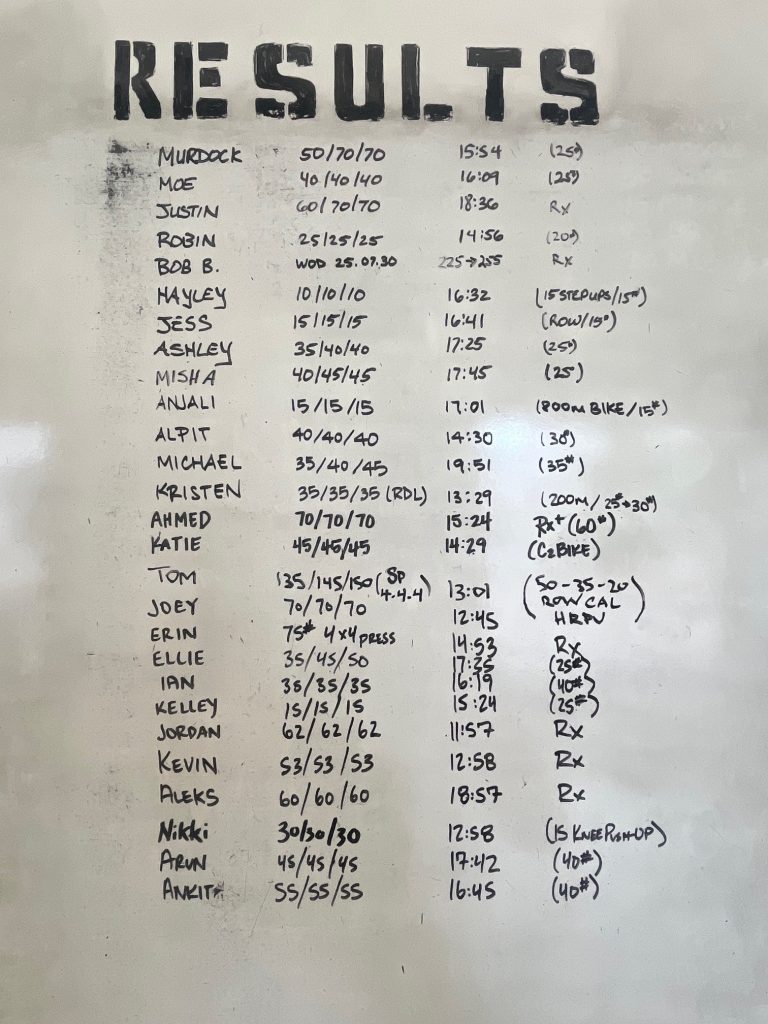 RESULTS
MURDOCK 50/70/70 15:54 (25#)
MOE 40/40/40 16:09 (25#)
JUSTIN 60/70/70 18:36 Rx
ROBIN 25/25/25 14:56 (20#)
BOB B. WOD 25.07.30 225→255 Rx
HAYLEY 10/10/10 16:32 (15 STEP UPS/15#)
JESS 15/15/15 16:41 (ROW/15#)
ASHLEY 35/40/40 17:25 (25#)
MISHA 40/45/45 17:45 (25)
ANJALI 15/15/15 17:01 (800M BIKE/15#)
ALPIT 40/40/40 14:30 (30#)
MICHAEL 35/40/45 19:51 (35#)
KRISTEN 35/35/35 (RDL) 13:29 (200M/25#→30#)
AHMED 70/70/70 15:24 Rx+ (60#)
KATIE 45/45/45 14:29 (C2 BIKE)
TOM 135/145/150 (SP 4.4.4) 13:01 (50-35-20 ROW CAL HRPU)
JOEY 70/70/70 12:45
ERIN 75# 4x4 PRESS 14:53 Rx
ELLIE 35/45/50 17:35 (25#)
IAN 35/35/35 16:19 (40#)
KELLEY 15/15/15 15:24 (25#)
JORDAN 62/62/62 11:57 Rx
KEVIN 53/53/53 12:58 Rx
ALEKS 60/60/60 18:57 Rx
Nikki 30/30/30 12:58 (15 KNEE PUSH-UP)
ARUN 45/45/45 17:42 (40#)
ANKIT 55/55/55 16:45 (40#)